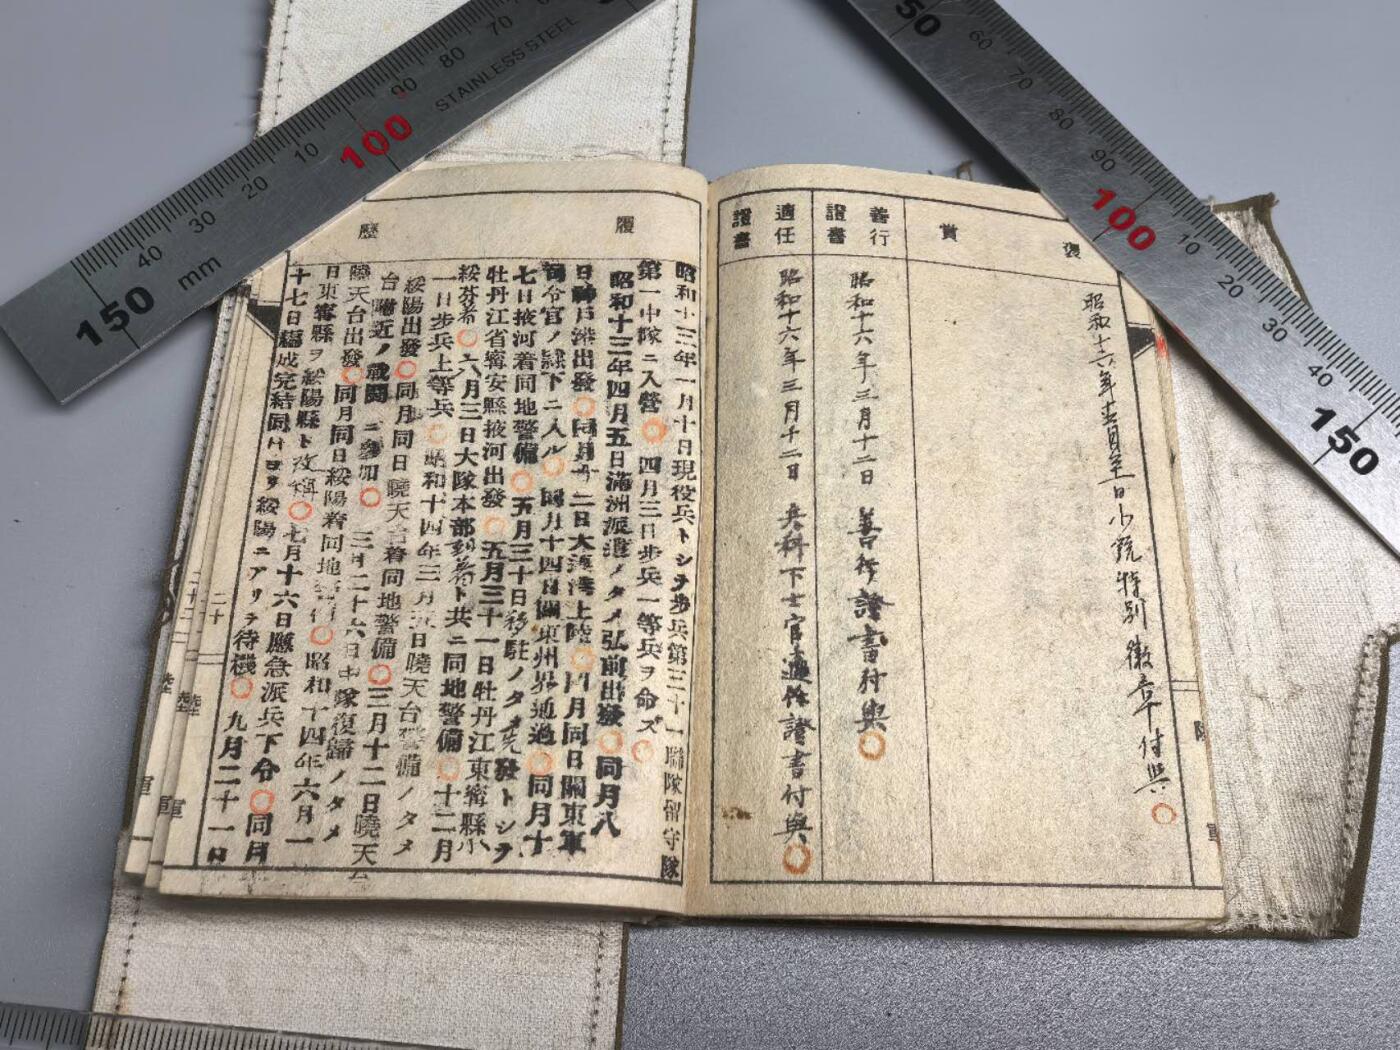 褒賞
昭和十六年 月 日小銃特別徽章付與
善行證書
昭和十六年三月十二日 善行證書付與
適任證書
昭和十六年三月十二日 兵科下士官適任證書付與
履歷
昭和十三年一月十日現役兵トシテ步兵第三十一聯隊留守隊
第一中隊ニ入營 四月三日步兵一等兵ヲ命ズ
昭和十三年四月五日滿洲派遣ノタメ弘前出發 同月八
日神戶港出發 同月十二日大連港上陸 同月同日關東軍
司令官ノ隷下ニ入ル 同月十四日關東州界通過 同月十
七日掖河着同地警備 五月三十日移駐ノタメ先發トシテ
牡丹江省寧安縣掖河出發 五月三十一日牡丹江東寧縣小
綏芬着 六月三日大隊本部到着ト共ニ同地警備 十二月
一日步兵上等兵 昭和十四年三月 日曉天台警備ノタメ
綏陽出發 同月同日曉天台着同地警備 三月十二日曉天
台附近ノ戰鬪ニ參加 三月二十六日中隊復歸ノタメ
曉天台出發 同月同日綏陽着同地 昭和十四年六月一
日東寧縣ヲ綏陽縣ト改稱 七月十六日應急派兵下令 同月
十七日編成完結同日ヨリ綏陽ニアリテ待機 九月二十一日
二十
軍
軍
150
mm
40
30
20
10
100
90
80
70
STAINLESS STEEL
50
60
70
80
90
100
10
20
30
40
150